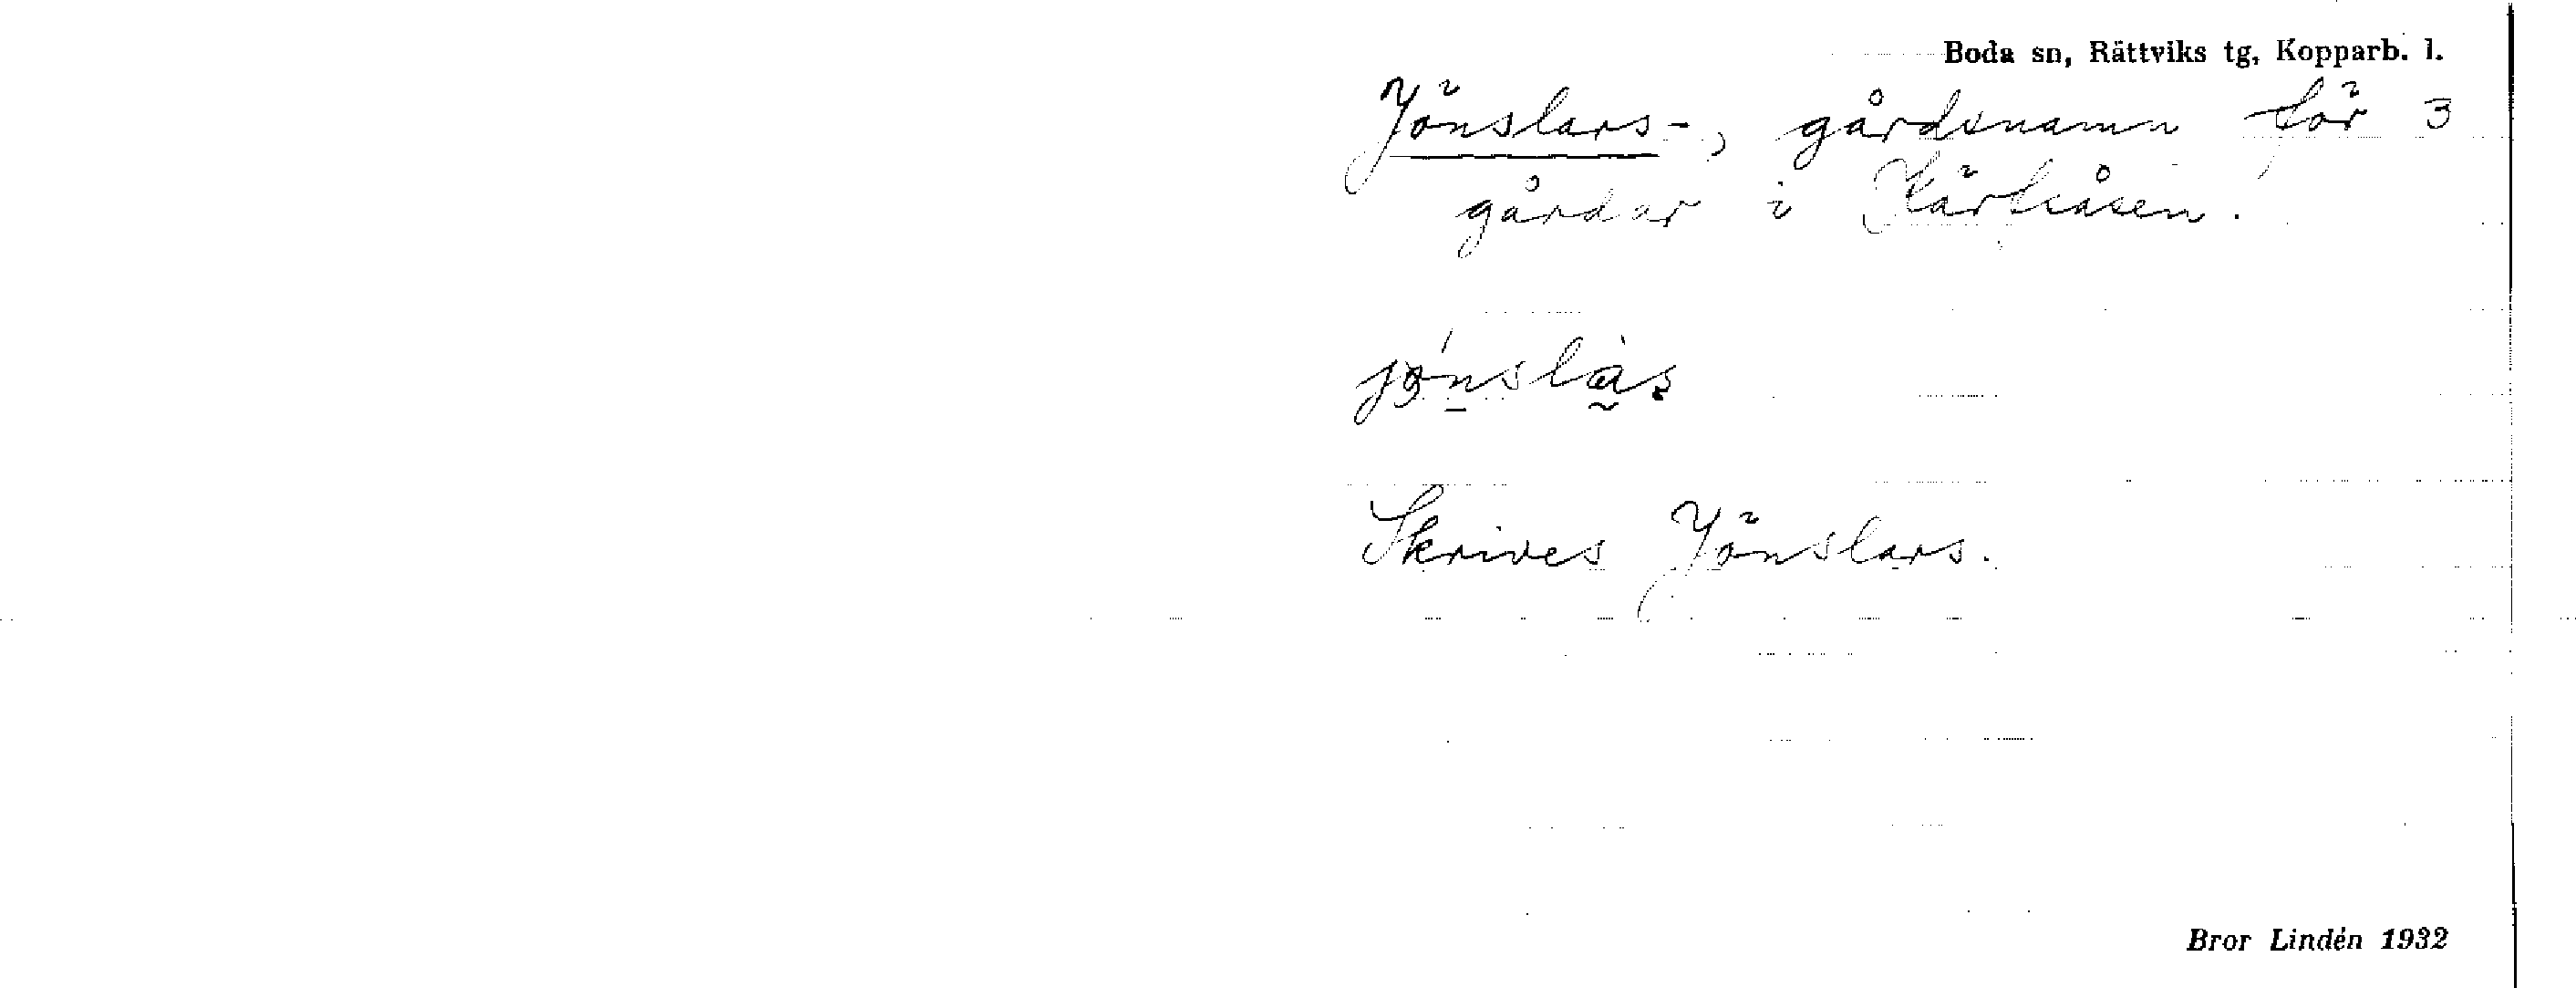 Boda sn, Rättviks tg, Kopparb. l.
Jönslars-, gårdsnamn för 3
gårdar i Kärfsåsen.
jö́nslàs
Skrives Jönslars.
Bror Lindén 1932